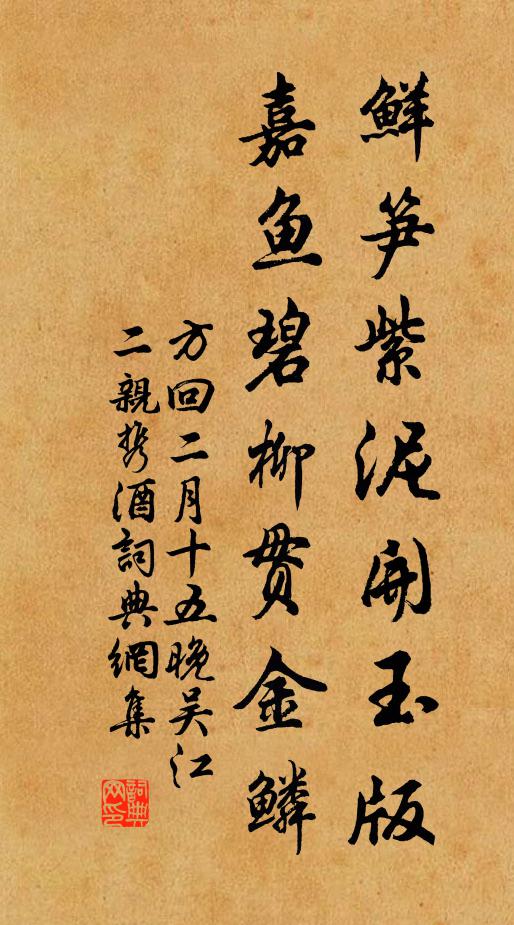 鮮笋紫泥開玉版
嘉鱼碧柳贯金鳞
方回二月十五晚吴江
二親携酒詞典網集
詞典網印